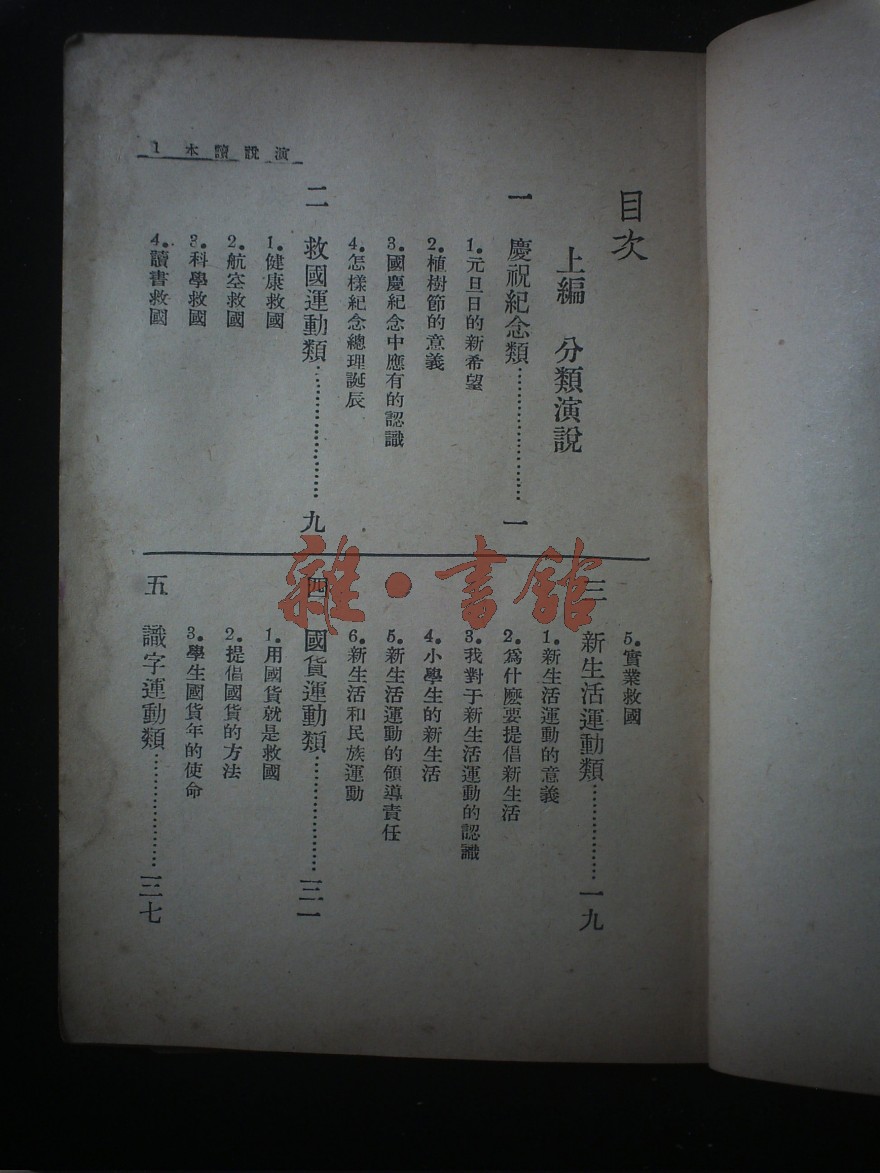 演說讀本 1
目次
上編 分類演說
一 慶祝紀念類……………………一
1.元旦日的新希望
2.植樹節的意義
3.國慶紀念中應有的認識
4.怎樣紀念總理誕辰
二 救國運動類……………………九
1.健康救國
2.航空救國
3.科學救國
4.讀書救國
5.實業救國
三 新生活運動類………………一九
1.新生活運動的意義
2.爲什麽要提倡新生活
3.我對于新生活運動的認識
4.小學生的新生活
5.新生活運動的領導責任
6.新生活和民族運動
四 國貨運動類…………………三一
1.用國貨就是救國
2.提倡國貨的方法
3.學生國貨年的使命
五 識字運動類…………………三七
雜·書館